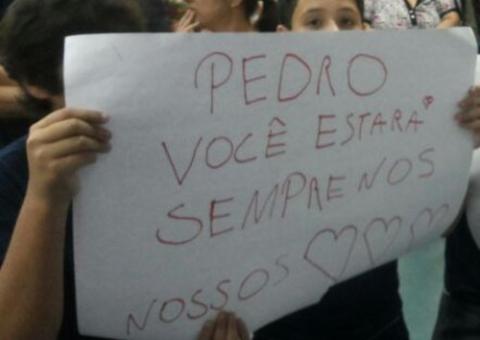 PEDRO
VOCÊ ESTARÁ
SEMPRE NOS
NOSSOS